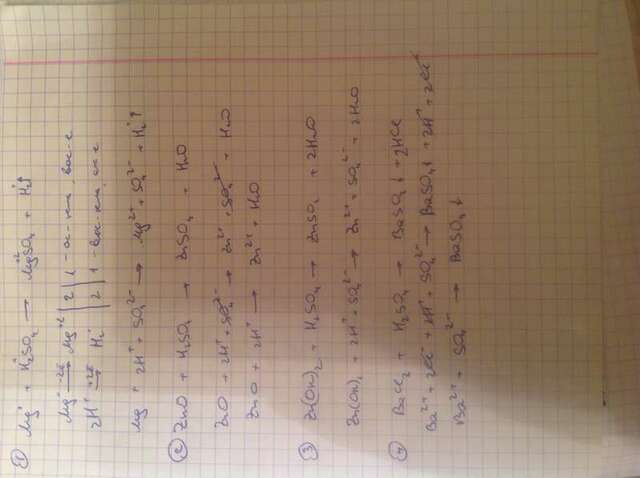 ① Mg⁰ + H₂⁺SO₄ → Mg⁺²SO₄ + H₂⁰↑
Mg⁰ → Mg⁺² | 2 | 1 - ок-ние, вос-ль
2H⁺ +2ē → H₂⁰ | 2 | 1 - вос-ние, ок-ль
Mg⁰ + 2H⁺ + SO₄²⁻ → Mg²⁺ + SO₄²⁻ + H₂⁰↑
② ZnO + H₂SO₄ → ZnSO₄ + H₂O
ZnO + 2H⁺ + SO₄²⁻ → Zn²⁺ + SO₄²⁻ + H₂O
ZnO + 2H⁺ → Zn²⁺ + H₂O
③ Zn(OH)₂ + H₂SO₄ → ZnSO₄ + 2H₂O
Zn(OH)₂ + 2H⁺ + SO₄²⁻ → Zn²⁺ + SO₄²⁻ + 2H₂O
④ BaCl₂ + H₂SO₄ → BaSO₄↓ + 2HCl
Ba²⁺ + 2Cl⁻ + 2H⁺ + SO₄²⁻ → BaSO₄↓ + 2H⁺ + 2Cl⁻
Ba²⁺ + SO₄²⁻ → BaSO₄↓